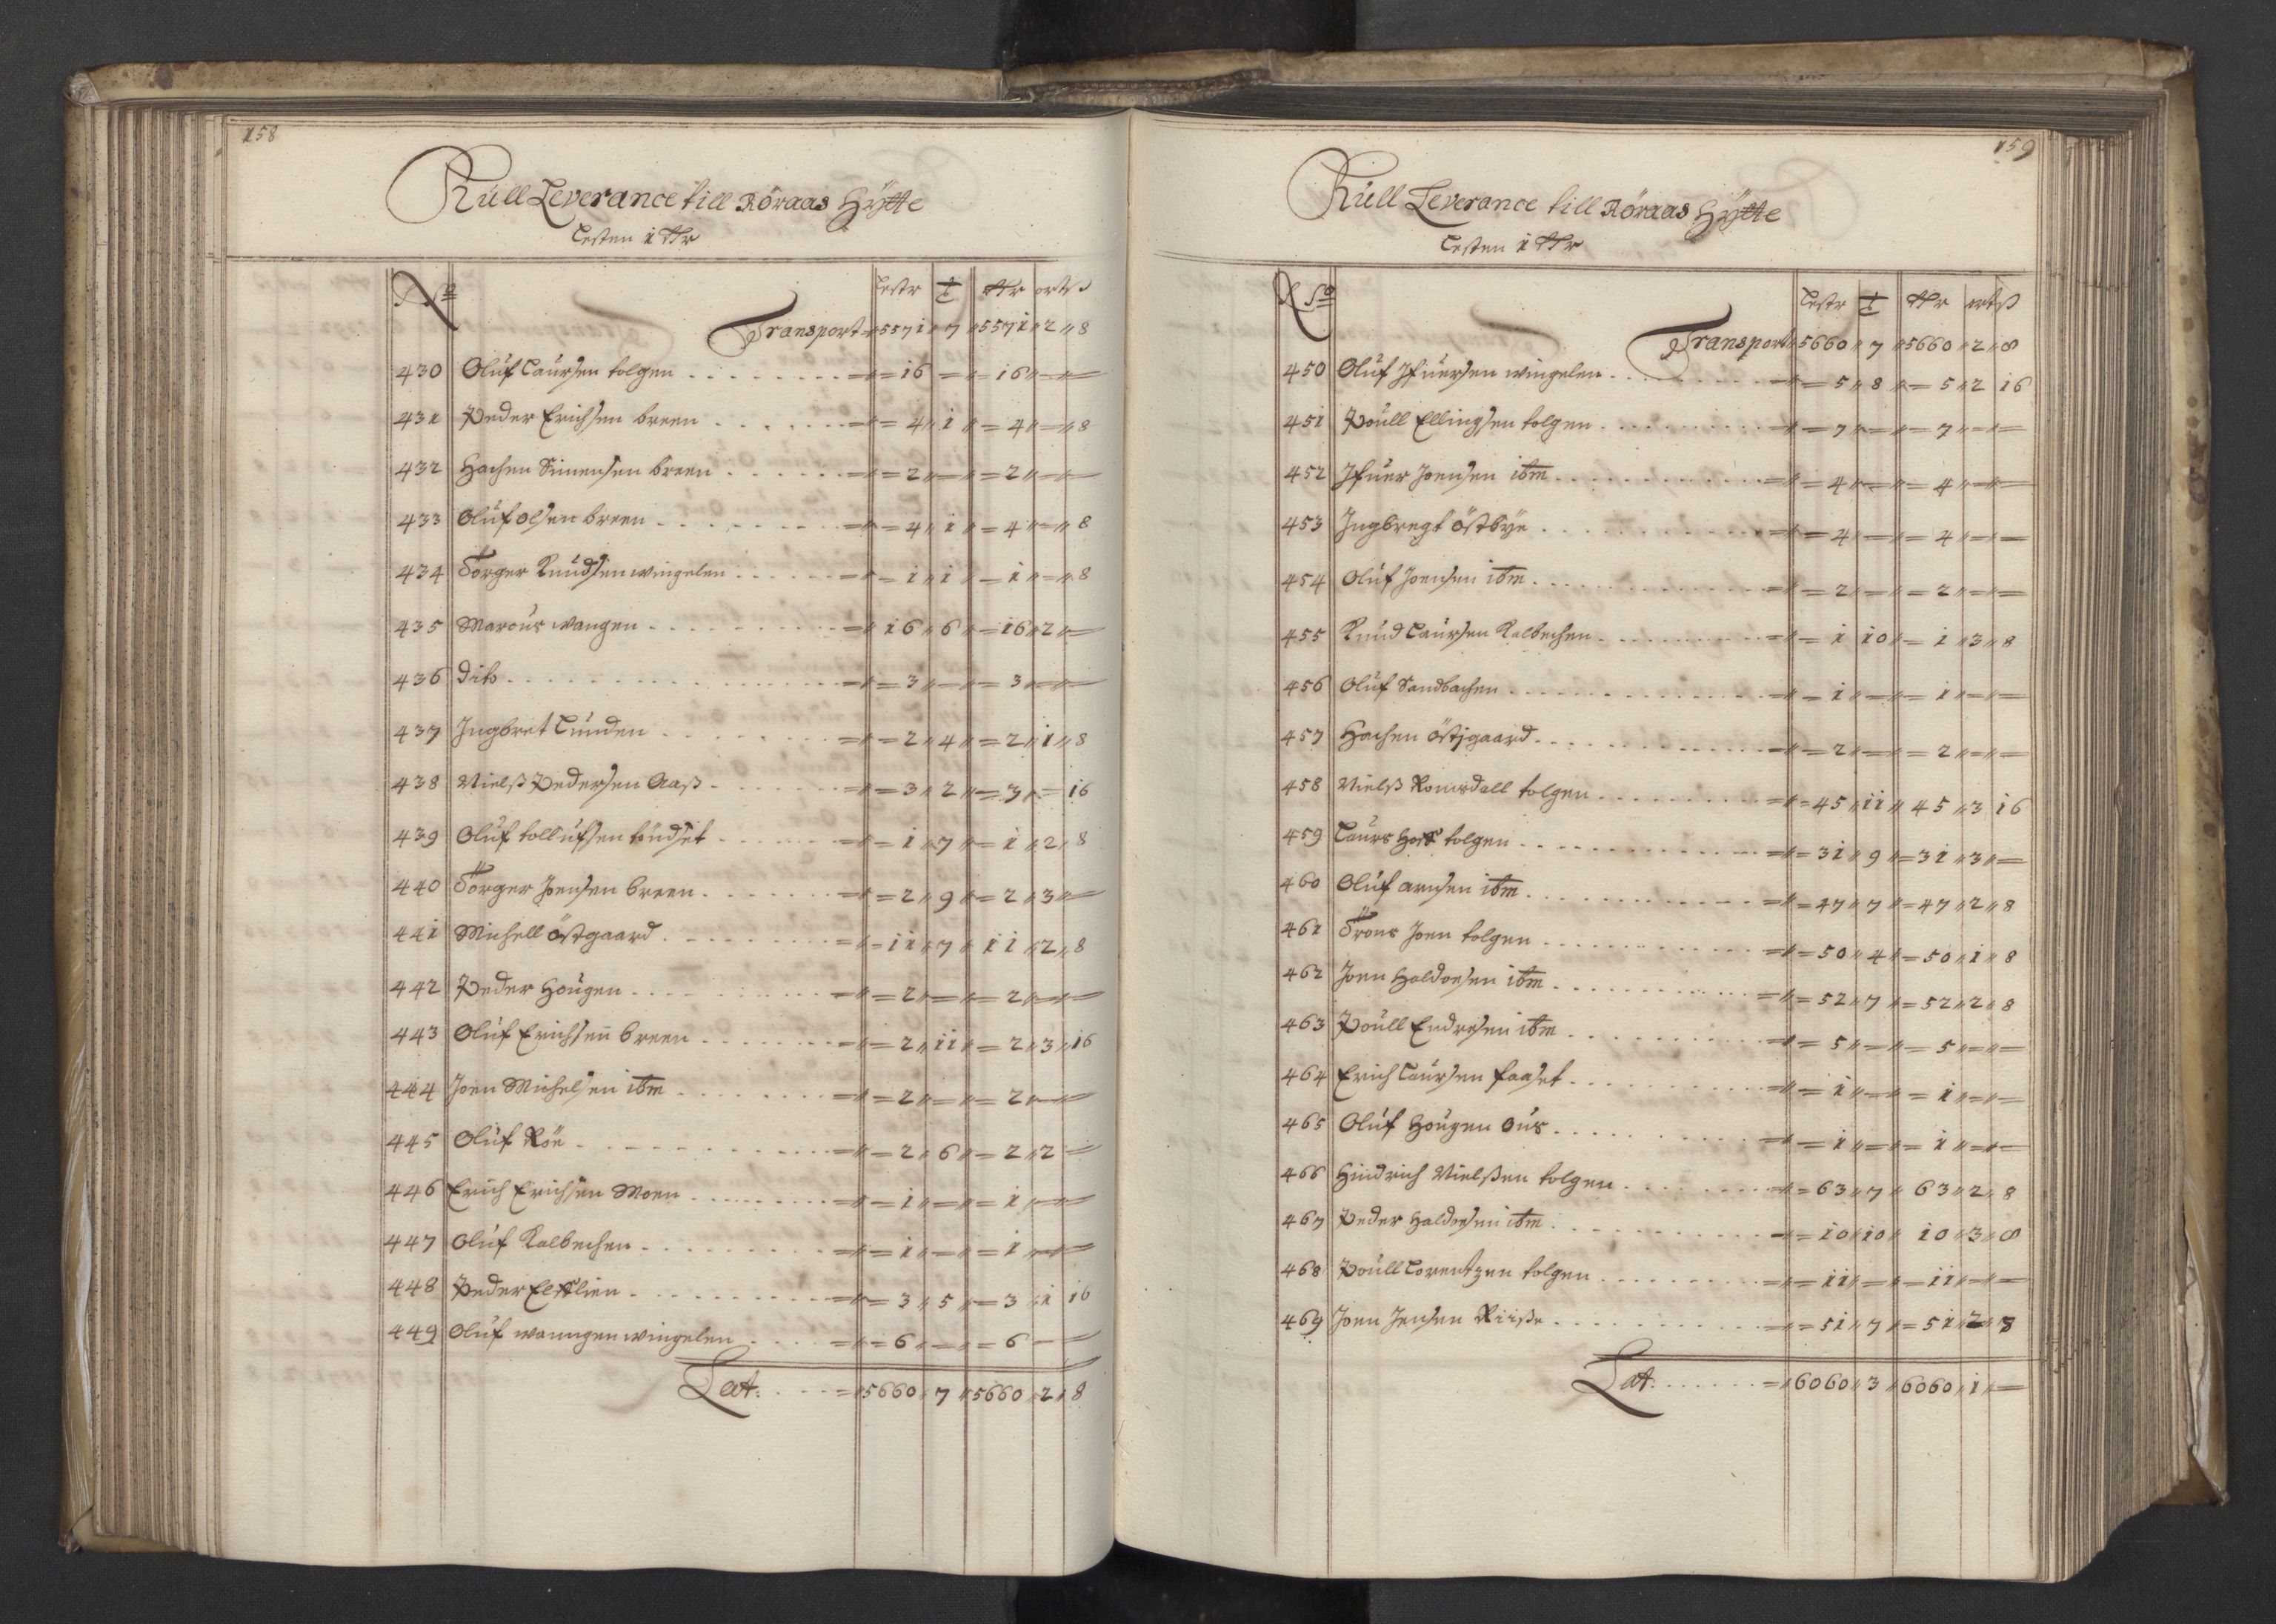 158
Kull Leverance till Röraas Hÿtte
Lesten i Rdr
No Lestr t Rdr ort ß
Transport = 5571 " 7 " 5571 " 2 " 8
430 Oluf Laursen tolgen = 16 " = " = 16 " = " =
431 Peder Erichsen breen = 4 " 1 " = 4 " = " 8
432 Hachen Simensen breen = 2 " = " = 2 " = " =
433 Oluf olsen breen = 4 " 1 " = 4 " = " 8
434 Torger Knudsen wingelen = 1 " 1 " = 1 " = " 8
435 Marcus wangen = 16 " 6 " = 16 " 2 " =
436 Dito = 3 " = " = 3 " = " =
437 Jngbret Lunden = 2 " 4 " = 2 " 1 " 8
438 Nielß Pedersen Aaß = 3 " 2 " = 3 " = 16
439 Oluf tollufsen tündset = 1 " 7 " = 1 " 2 " 8
440 Torger Joensen breen = 2 " 9 " = 2 " 3 " =
441 Michell östgaard = 11 " 7 " 11 " 2 " 8
442 Peder Hougen = 2 " = " = 2 " = " =
443 Oluf Erichsen breen = 2 " 11 " = 2 " 3 " 16
444 Joen Michelsen itm = 2 " = " = 2 " = " =
445 Oluf Röe = 2 " 6 " = 2 " 2 =
446 Erich Erichsen Moen = 1 " = " = 1 " = " =
447 Oluf Kalbechen = 1 " = " = 1 " = " =
448 Peder = 3 " 5 " = 3 " 1 16
449 Oluf wanngen wingelen = 6 " = " = 6 = =
Lat: = 5660 " 7 " 5660 " 2 " 8
159
Kull Leverance till Röraas Hÿtte
Lesten i Rdr
No Lestr t Rdr ort ß
Transport " 5660 " 7 " 5660 " 2 " 8
450 Oluf Jfuersen wingelen = 5 " 8 " = 5 " 2 16
451 Poull Ellingsen tolgen = 7 " = " = 7 " = " =
452 Jfuer Joensen itm = 4 " = " = 4 " = " =
453 Jngbregt östbÿe = 4 " = " = 4 " = " =
454 Oluf Joensen itm = 2 " = " = 2 " = " =
455 Knud Laursen Kalbechen = 1 10 " = 1 " 3 " 8
456 Oluf Sandbachen = 1 " = " = 1 " = " =
457 Hachen östjgaard = 2 " = " = 2 " = " =
458 Nielß Romsdall tolgen = 45 " 11 " 45 " 3 16
459 Laurs tolgen = 31 " 9 " = 31 " 3 " =
460 Oluf arnsen itm = 47 " 7 " = 47 " 2 " 8
461 Trons Joen tolgen = 50 " 4 " = 50 " 1 " 8
462 Joen Haldorsen itm = 52 " 7 " = 52 " 2 " 8
463 Poull Endresen itm = 5 " = " = 5 " = " =
464 Erich Laursen faaset = 1 " = " = 1 " = " =
465 Oluf Hougen Ous = 1 " = " = 1 " = " =
466 Hindrich Nielßen tolgen = 63 " 7 " 63 " 2 " 8
467 Peder Haldorsen itm = 10 " 10 " 10 " 3 " 8
468 Poull Lorentzen tolgen = 11 " = " = 11 " = " =
469 Joen Jensen Riiße = 51 " 7 " = 51 " 2 " 8
Lat: = " 6060 " 3 " 6060 " 1 " =